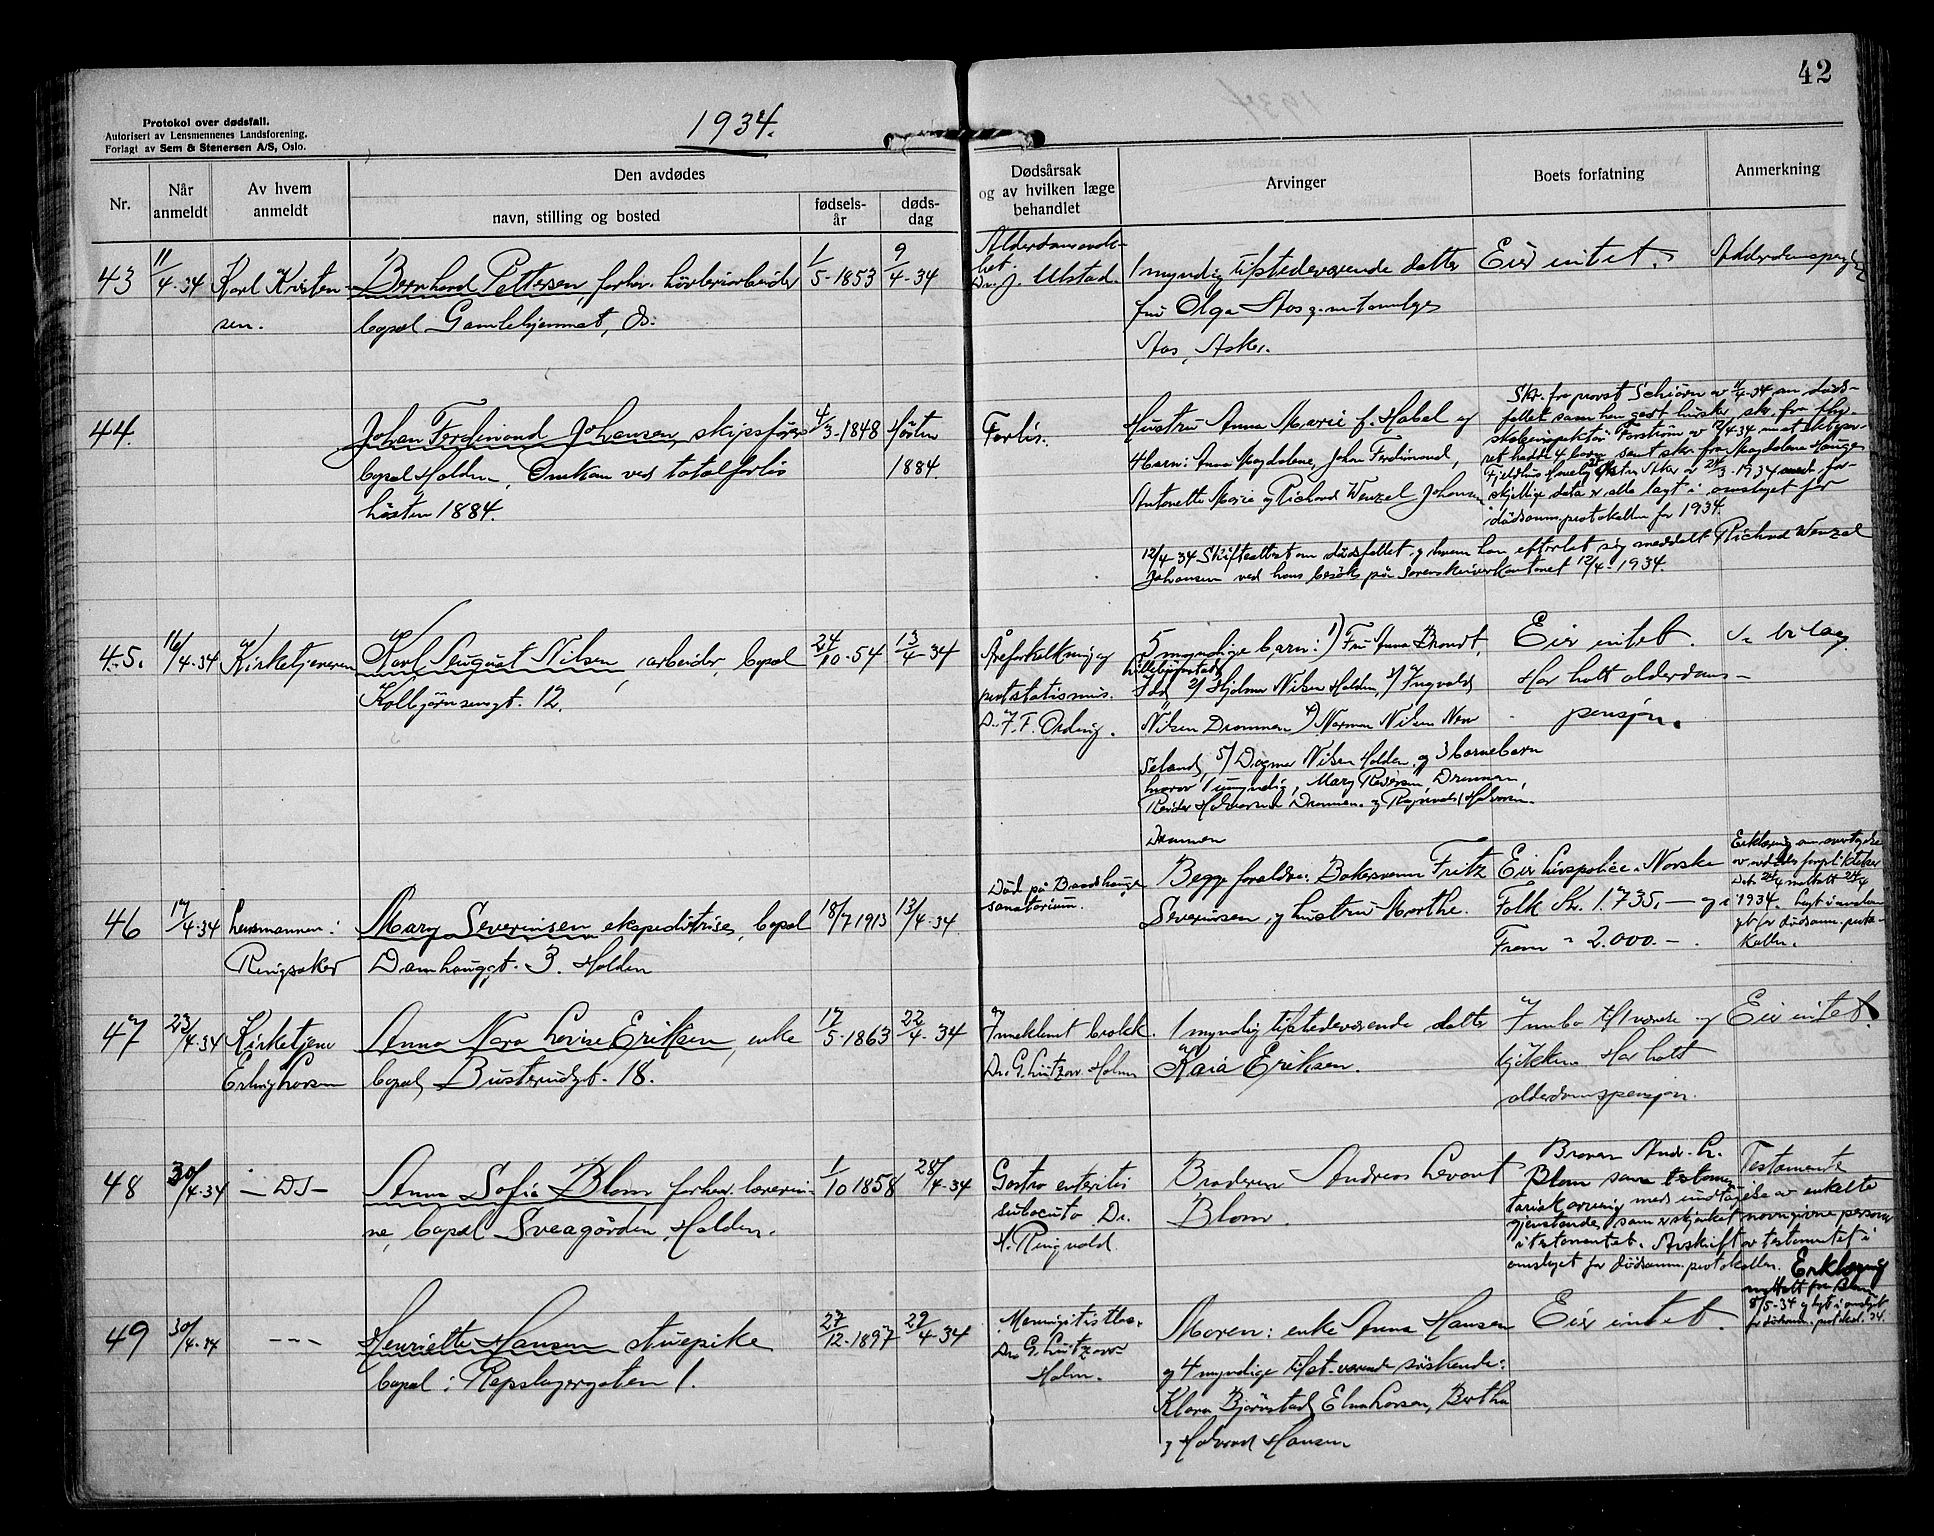 42
Protokol over dødsfall.
Autorisert av Lensmennenes Landsforening.
Forlagt av Sem & Stenersen A/S, Oslo.
1934.
Nr.
Når anmeldt
Av hvem anmeldt
Den avdødes
navn, stilling og bosted
fødsels-år
døds-dag
Dødsårsak og av hvilken læge behandlet
Arvinger
Boets forfatning
Anmerkning
43
11/4-34
Karl Kristen-
sen.
Bernhard Pettersen, forhv. høvleriarbeider
bopæl Gamlehjemmet, ds.
1/5-1853
9/4-34
Dr. J. Ulstad.
1 myndig tilstedeværende datter
fru Olga Aos
Aos, Asker.
Eier intet.
44.
Johan Ferdinand Johansen, skipsfører
bopæl Halden, Omkom ved totalforlis
høsten 1884.
4/3-1848
Høsten
1884.
Forlis.
Hustru Anna Marie f. Habel og
4 barn: Anna Magdalene, Johan Ferdinand,
Antonette Marie og Richard Wenzel Johansen
Skr. fra provst Schiørn av 11/4-34 om døds-
fallet som han godt husker, skr. fra
av 12/4-34
ret hadde 4 barn samt skr. fra Magdalene Hauge
Aker av 3-1934 med for-
skjellige data er alle lagt i omslaget for
dødsanm.protokollen for 1934.
12/4 34 Skifteattest om dødsfallet og hvem han efterlot sig meddelt Richard Wenzel
Johansen ved hans besøk på sorenskriverkontoret 12/4-1934.
45.
16/4-34
Kirketjeneren
Karl August Nilsen, arbeider, bopæl
Kolbjørnsensgt. 12.
24/10-54
13/4-34
Åreforkalkning og
prostatismus.
Dr. F. F. Ording.
5 myndige barn: 1) Fru Anna Brandt,
Idd 2) Hjalmar Nilsen Halden, 3) Ingvald
Nilsen Drammen 4) Norman Nilsen New
Seland, 5) Dagmar Nilsen Halden og 3 barnebarn
hvorav 1 umyndig, Mary Pedersen, Drammen,
Reidar Halvorsen Drammen og Ragnvald Halvorsen
Drammen
Eier intet.
Har hatt alderdoms-
pensjon.
Se bilag.
46
17/4-34
Lensmannen i
Ringsaker
Mary Severinsen ekspeditrise, bopæl
Damhauggt. 3. Halden
18/7 1913
13/4-34
Død på
sanatorium.
Begge foreldre: Bakersvenn Fritz
Severinsen og hustru Marthe.
Eier livspolice i Norske
Folk Kr. 1.735,- og i
Fram " 2.000.-
Erklæring om overtagelse
av avdødes forpliktelser
1934. Lagt i omslan-
get for dødsanm.proto-
kollen.
47
23/4-34
Kirketjener
Erling Larsen
Anna Nora Lovise Eriksen, enke
bopæl Busterudgt. 18.
17/5-1863
22/4-34
Inneklemt brokk.
Dr. G. Lützow Holm
1 myndig tilstedeværende datter
Kaia Eriksen.
Innbo til 1 værelse og
kjøkken. Har hatt
alderdomspensjon.
Eier intet.
48
30/4-34
- Ds -
Anna Sofie Blom forhenv. lærerin-
ne, bopæl Sveagården, Halden.
1/10 1858
28/4-34
Gastro enteritis
subacuta Dr.
H. Ringvold.
Broderen Andreas Levant
Blom.
Broren Andr. L.
Blom som testamen-
tarisk arving med undtagelse av enkelte
gjenstander som er skjenket navngivne personer
i testamentet. Avskrift av testamentet i
omslaget for dødsanm.protokollen.
Testamente
Erklæring
mottatt fra Blom
8/5-34 og lagt i omslaget
for dødsanm.protokol. 34.
49
30/4-34
- - -
Henriette Hansen stuepike
bopæl i Repslagergaten 1.
27/12-1897
29/4-34
Dr. G. Lützow-
Holm.
Moren: enke Anna Hansen
og 4 myndige tilst.værende søskende:
Klara Bjørnstad, Elna Larsen, Bertha
og Halvard Hansen
Eier intet.